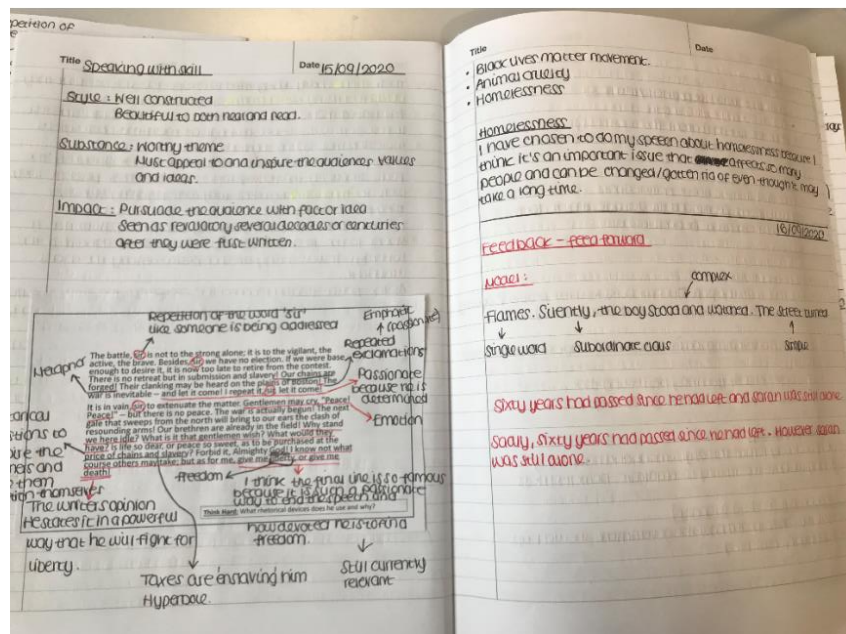 petition of
Title Speaking with skill
Date 15/09/2020
Style : Well constructed
Beautiful to both hear and read.
Substance : Worthy theme
Must appeal to and inspire the audiences values
and ideas.
Impact : Pursuade the audience with fact or idea
Seen as revalatory several decades or centuries
after they were first written.
Repetition of the word 'sir'
like someone is being addressed
Emphatic
(passionate)
Repeated
exclamations
The battle, sir, is not to the strong alone; it is to the vigilant, the
active, the brave. Besides, sir, we have no election. If we were base
enough to desire it, it is now too late to retire from the contest.
There is no retreat but in submission and slavery! Our chains are
forged! Their clanking may be heard on the plains of Boston! The
war is inevitable – and let it come! I repeat it, sir, let it come!
It is in vain, sir, to extenuate the matter. Gentlemen may cry, "Peace!
Peace!" – but there is no peace. The war is actually begun! The next
gale that sweeps from the north will bring to our ears the clash of
resounding arms! Our brethren are already in the field! Why stand
we here idle? What is it that gentlemen wish? What would they
have? Is life so dear, or peace so sweet, as to be purchased at the
price of chains and slavery? Forbid it, Almighty God! I know not what
course others may take; but as for me, give me liberty, or give me
death!
Passionate
because he is
determined
Emotion
orical
stions to
the
and
them
tion themselves
freedom
The writers opinion
He states it in a powerful
way that he will fight for
liberty.
I think the final line is so famous
because it is such a passionate
way to end the speech and
Think Hard: What rhetorical devices does he use and why?
how devoted he is for
freedom.
Still currently
relevant
Taxes are enslaving him
Hyperbole.
Title
Date
• Black Lives matter movement.
• Animal cruelty
• Homelessness
Homelessness
I have chosen to do my speech about homelessness because I
think it's an important issue that affects so many
people and can be changed/gotten rid of even though it may
take a long time.
18/09/2020
Feedback – feed forward
Model :
complex
Flames. Silently, the boy stood and watched. The street
single word
subordinate claus
simple
Sixty years had passed since he had left and saran was still alone
Sadly, sixty years had passed since he had left. However saran
was still alone.